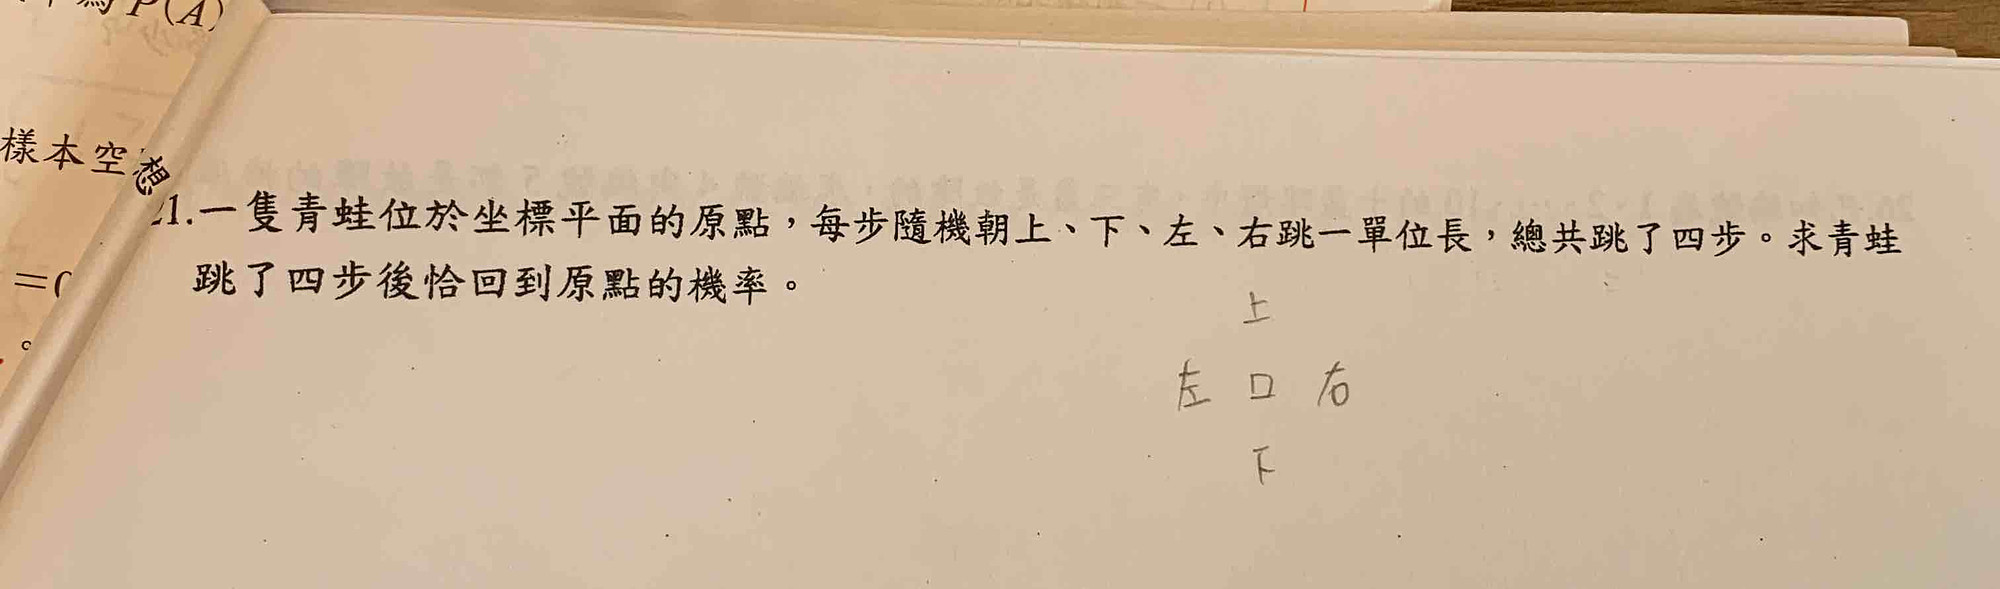 為P(A)
樣本空
想
21.一隻青蛙位於坐標平面的原點，每步隨機朝上、下、左、右跳一單位長，總共跳了四步。求青蛙
跳了四步後恰回到原點的機率。
上
左 口 右
下